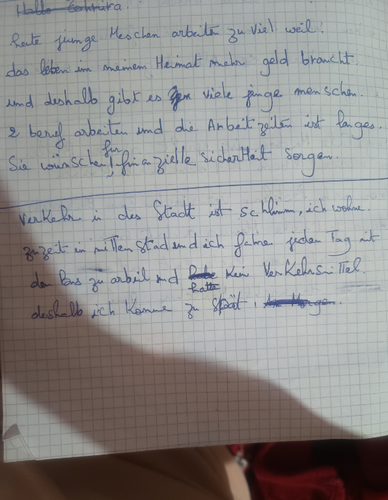 Hallo
heute junge Meschen arbeiten zu viel weil.
das leben im meinem Heimat mehr geld braucht.
und deshalb gibt es viele junge menschen.
2 beruf arbeiten und die Arbeitzeiten ist langes.
Sie wünschen für finanzielle sicherHeit sorgen.
Verkehr in des Stadt ist schlimm, ich wohne
zuzeit in mitten stad und ich fahre jeden Tag mit
den Bus zu arbeit und hatte kein Verkehrsmittel.
deshalb ich Komme zu spät.